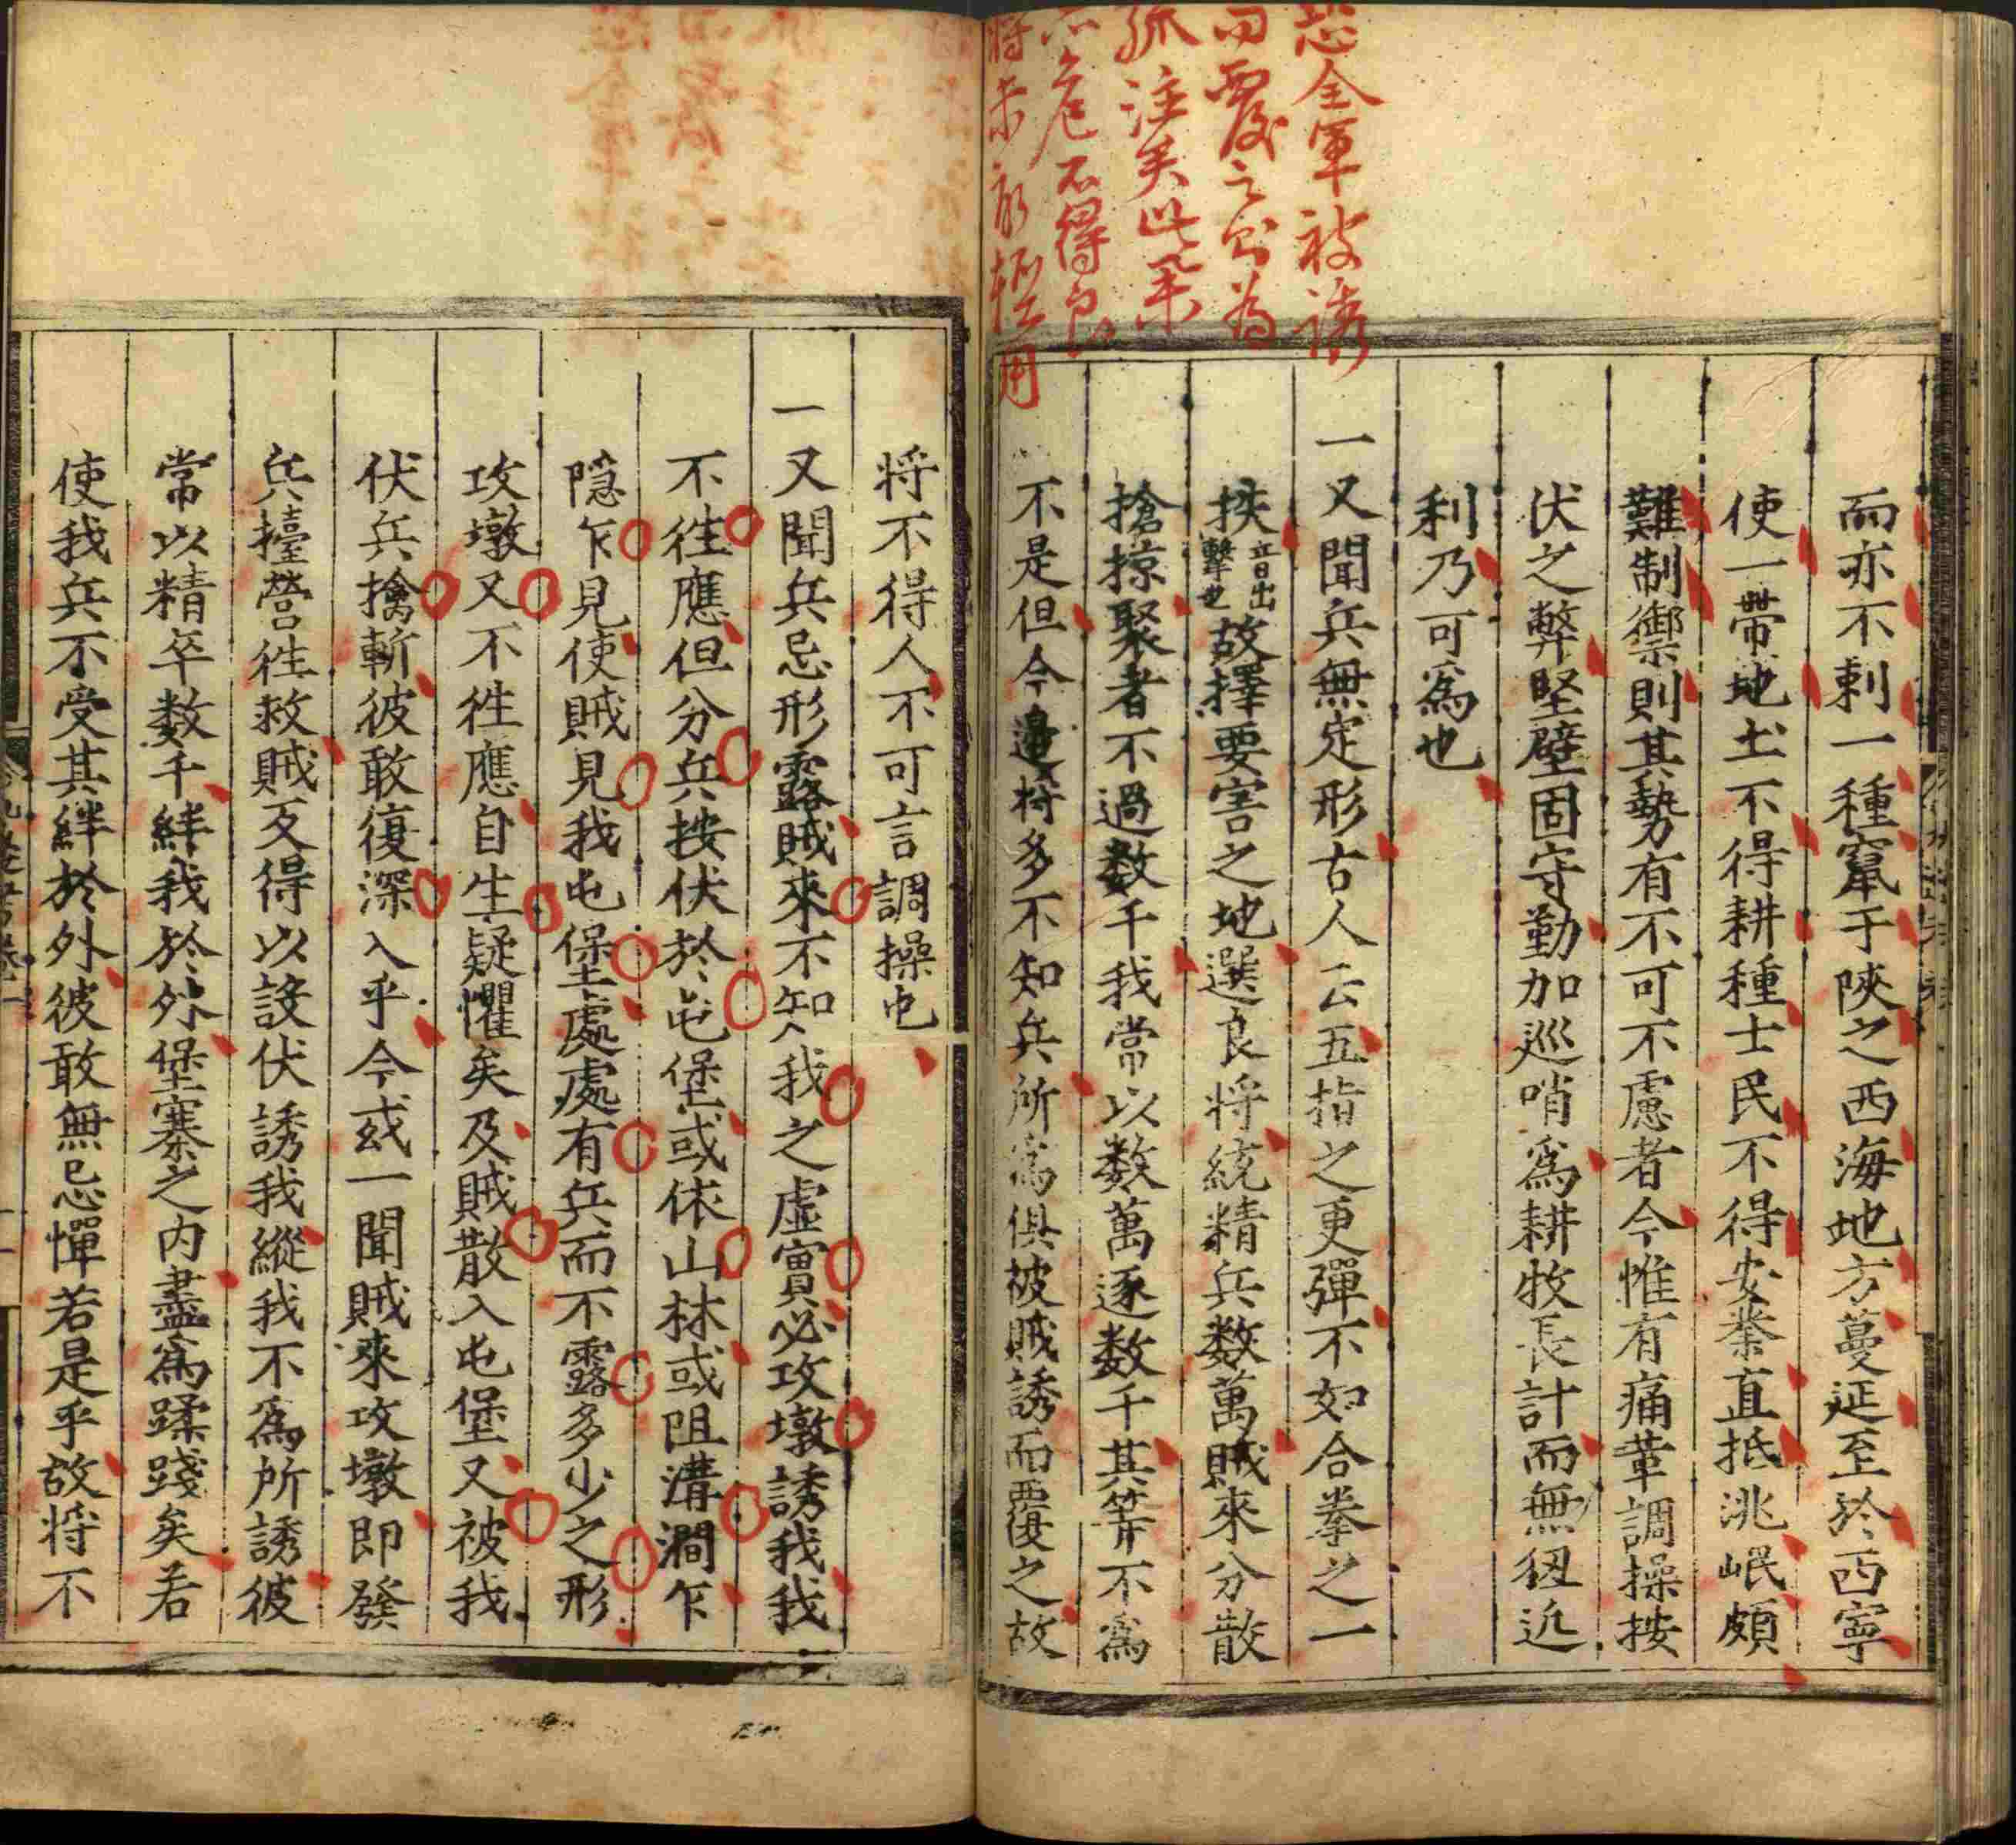 恐全軍被誘
而覆之與為
孤注矣此舉
不危不得良
將未可輕用
而亦不剌一種竄于陝之西海地方蔓延至於西寧
使一帶地土不得耕種士民不得安業直抵洮岷頗
難制禦則其勢有不可不慮者今惟有痛革調操按
伏之弊堅壁固守勤加巡哨為耕牧長計而無徑近
利乃可為也
一又聞兵無定形古人云五指之更彈不如合拳之一
挟音出擊也故擇要害之地選良将統精兵数萬賊來分散
搶掠聚者不過数千我當以数萬逐数千其筭不為
不是但今邊将多不知兵所為俱被賊誘而覆之故
将不得人不可言調操也
一又聞兵忌形露賊來不知我之虚實必攻墩誘我我
不徃應但分兵按伏於屯堡或依山林或阻溝澗乍
隠乍見使賊見我屯堡處處有兵而不露多少之形
攻墩又不徃應自生疑懼矣及賊散入屯堡又被我
伏兵擒斬彼敢復深入乎今或一聞賊來攻墩即發
兵擡營徃救賊反得以設伏誘我縱我不為所誘彼
常以精卒数千絆我於外堡寨之内盡為蹂踐矣若
使我兵不受其絆於外彼敢無忌憚若是乎故将不